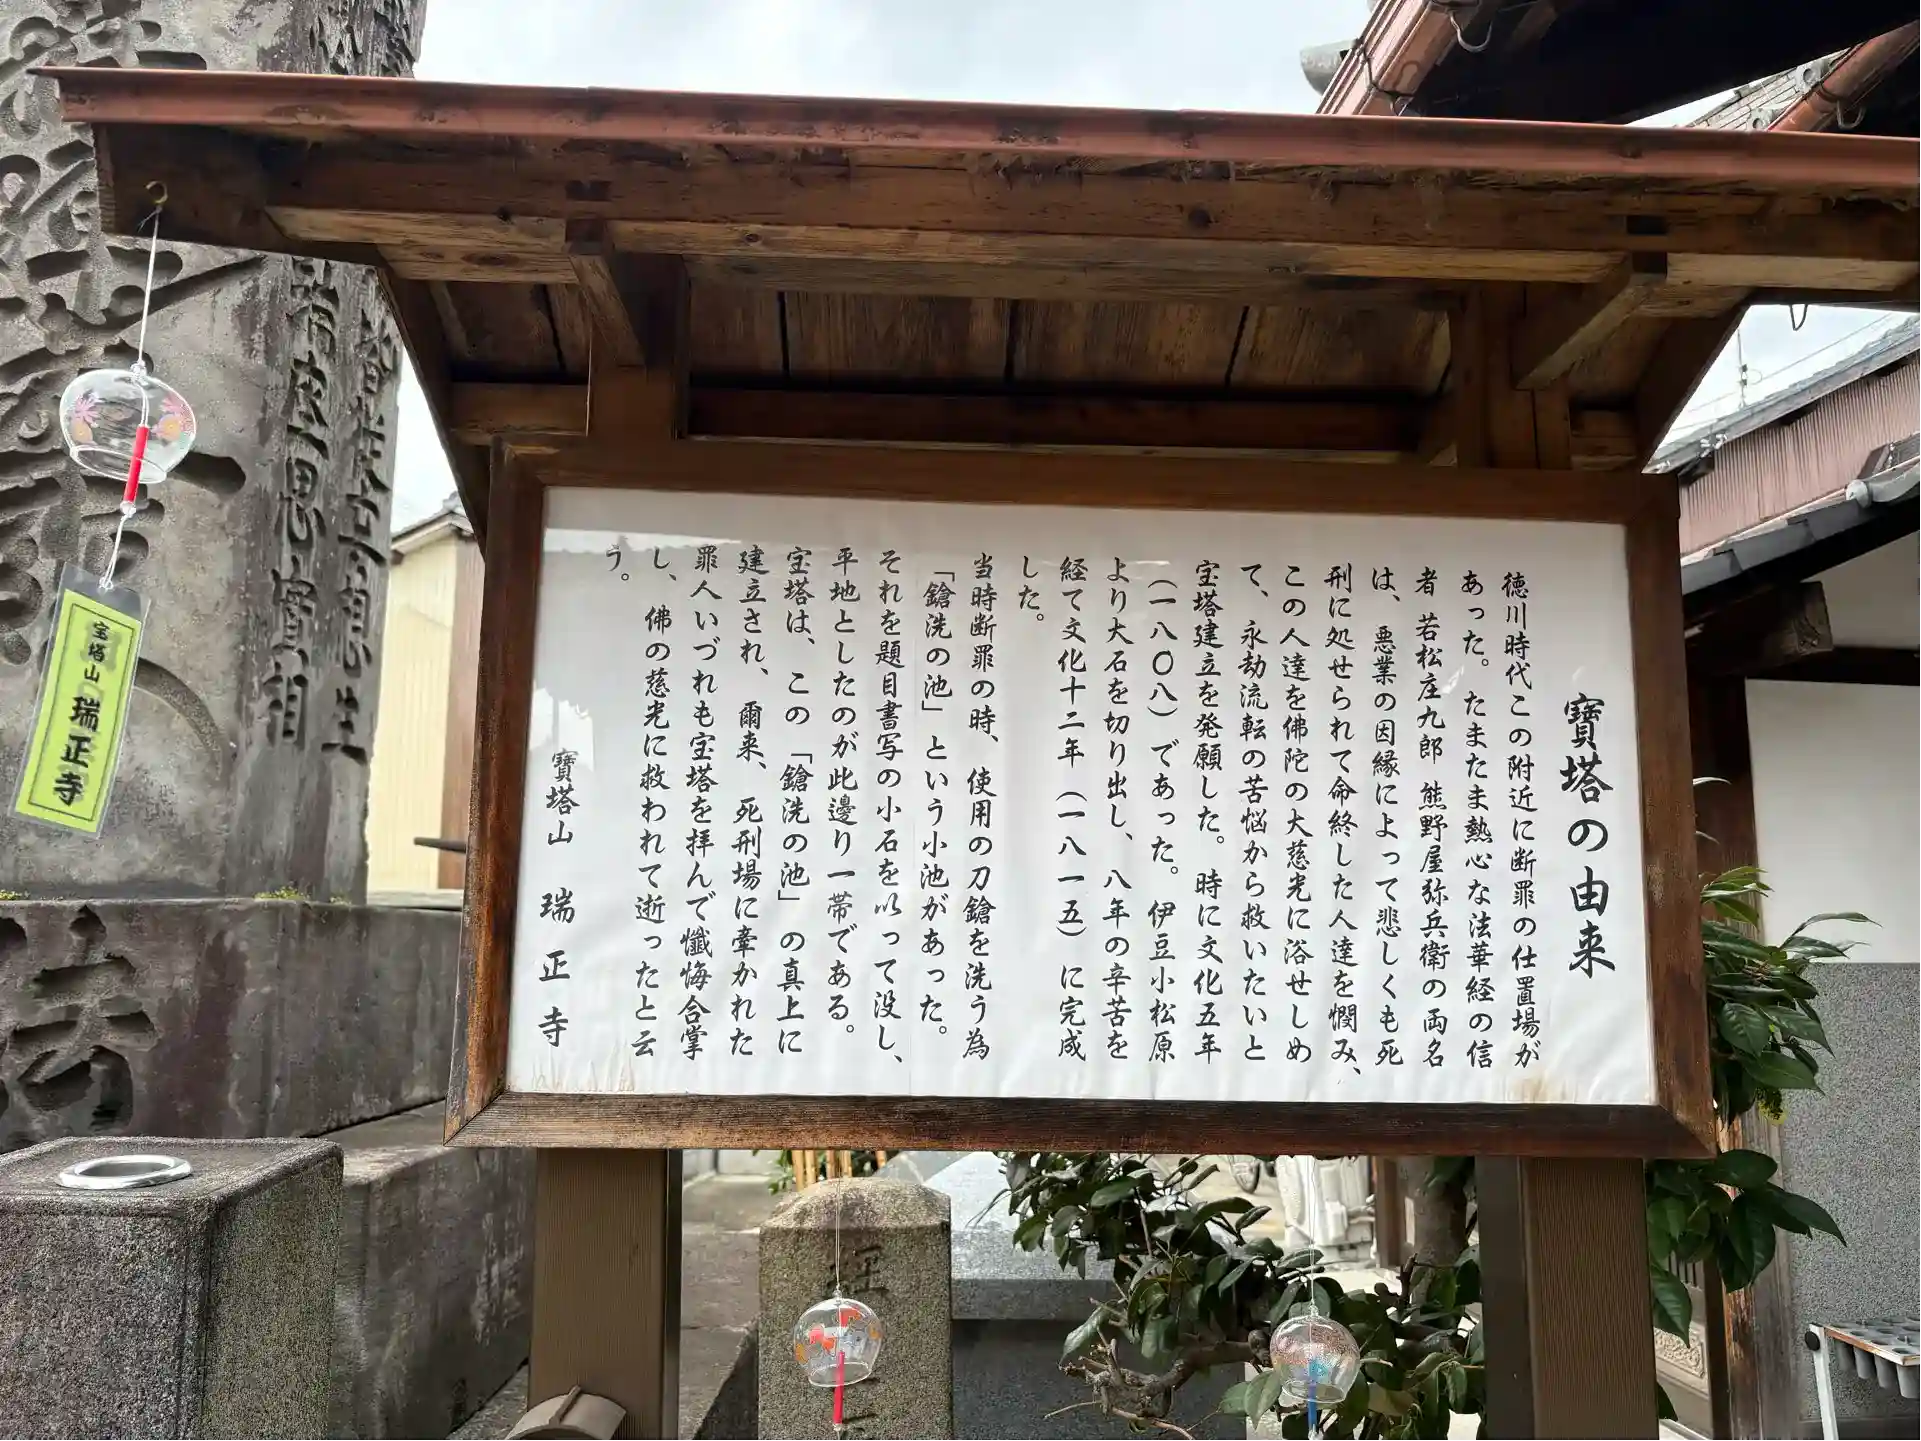 寶塔の由来
徳川時代この附近に断罪の仕置場が
あった。たまたま熱心な法華経の信
者 若松庄九郎 熊野屋弥兵衛の両名
は、悪業の因縁によって悲しくも死
刑に処せられて命終した人達を憫み、
この人達を佛陀の大慈光に浴せしめ
て、永劫流転の苦悩から救いたいと
宝塔建立を発願した。時に文化五年
(一八〇八)であった。伊豆小松原
より大石を切り出し、八年の辛苦を
経て文化十二年(一八一五)に完成
した。
当時断罪の時、使用の刀鎗を洗う為
「鎗洗の池」という小池があった。
それを題目書写の小石を以って没し、
平地としたのが此邊り一帯である。
宝塔は、この「鎗洗の池」の真上に
建立され、爾来、死刑場に牽かれた
罪人いづれも宝塔を拝んで懺悔合掌
し、佛の慈光に救われて逝ったと云
う。
寶塔山 瑞正寺
宝塔山 瑞正寺
皆從妄想生
端座思實相